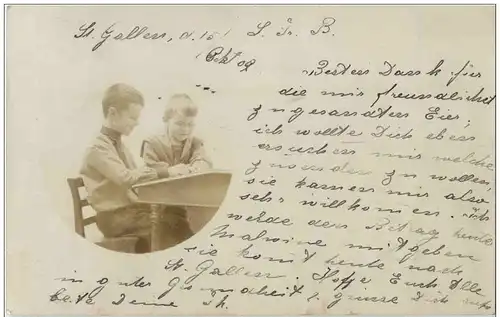 St. Gallen, d. 15/ L. Fr. B.
Okt 09
Besten Dank für
die mir freundlichst
zugesandten Eier;
ich wollte Dich eben
ersuchen mir welche
zusenden zu wollen,
sie kamen mir also
sehr willkommen. Ich
werde den Betrag heute
Malwine mitgeben
sie kommt heute nach
St. Gallen. Hoffe Euch Alle
in guter Gesundheit & grüsse Dich
beste Deine Th.